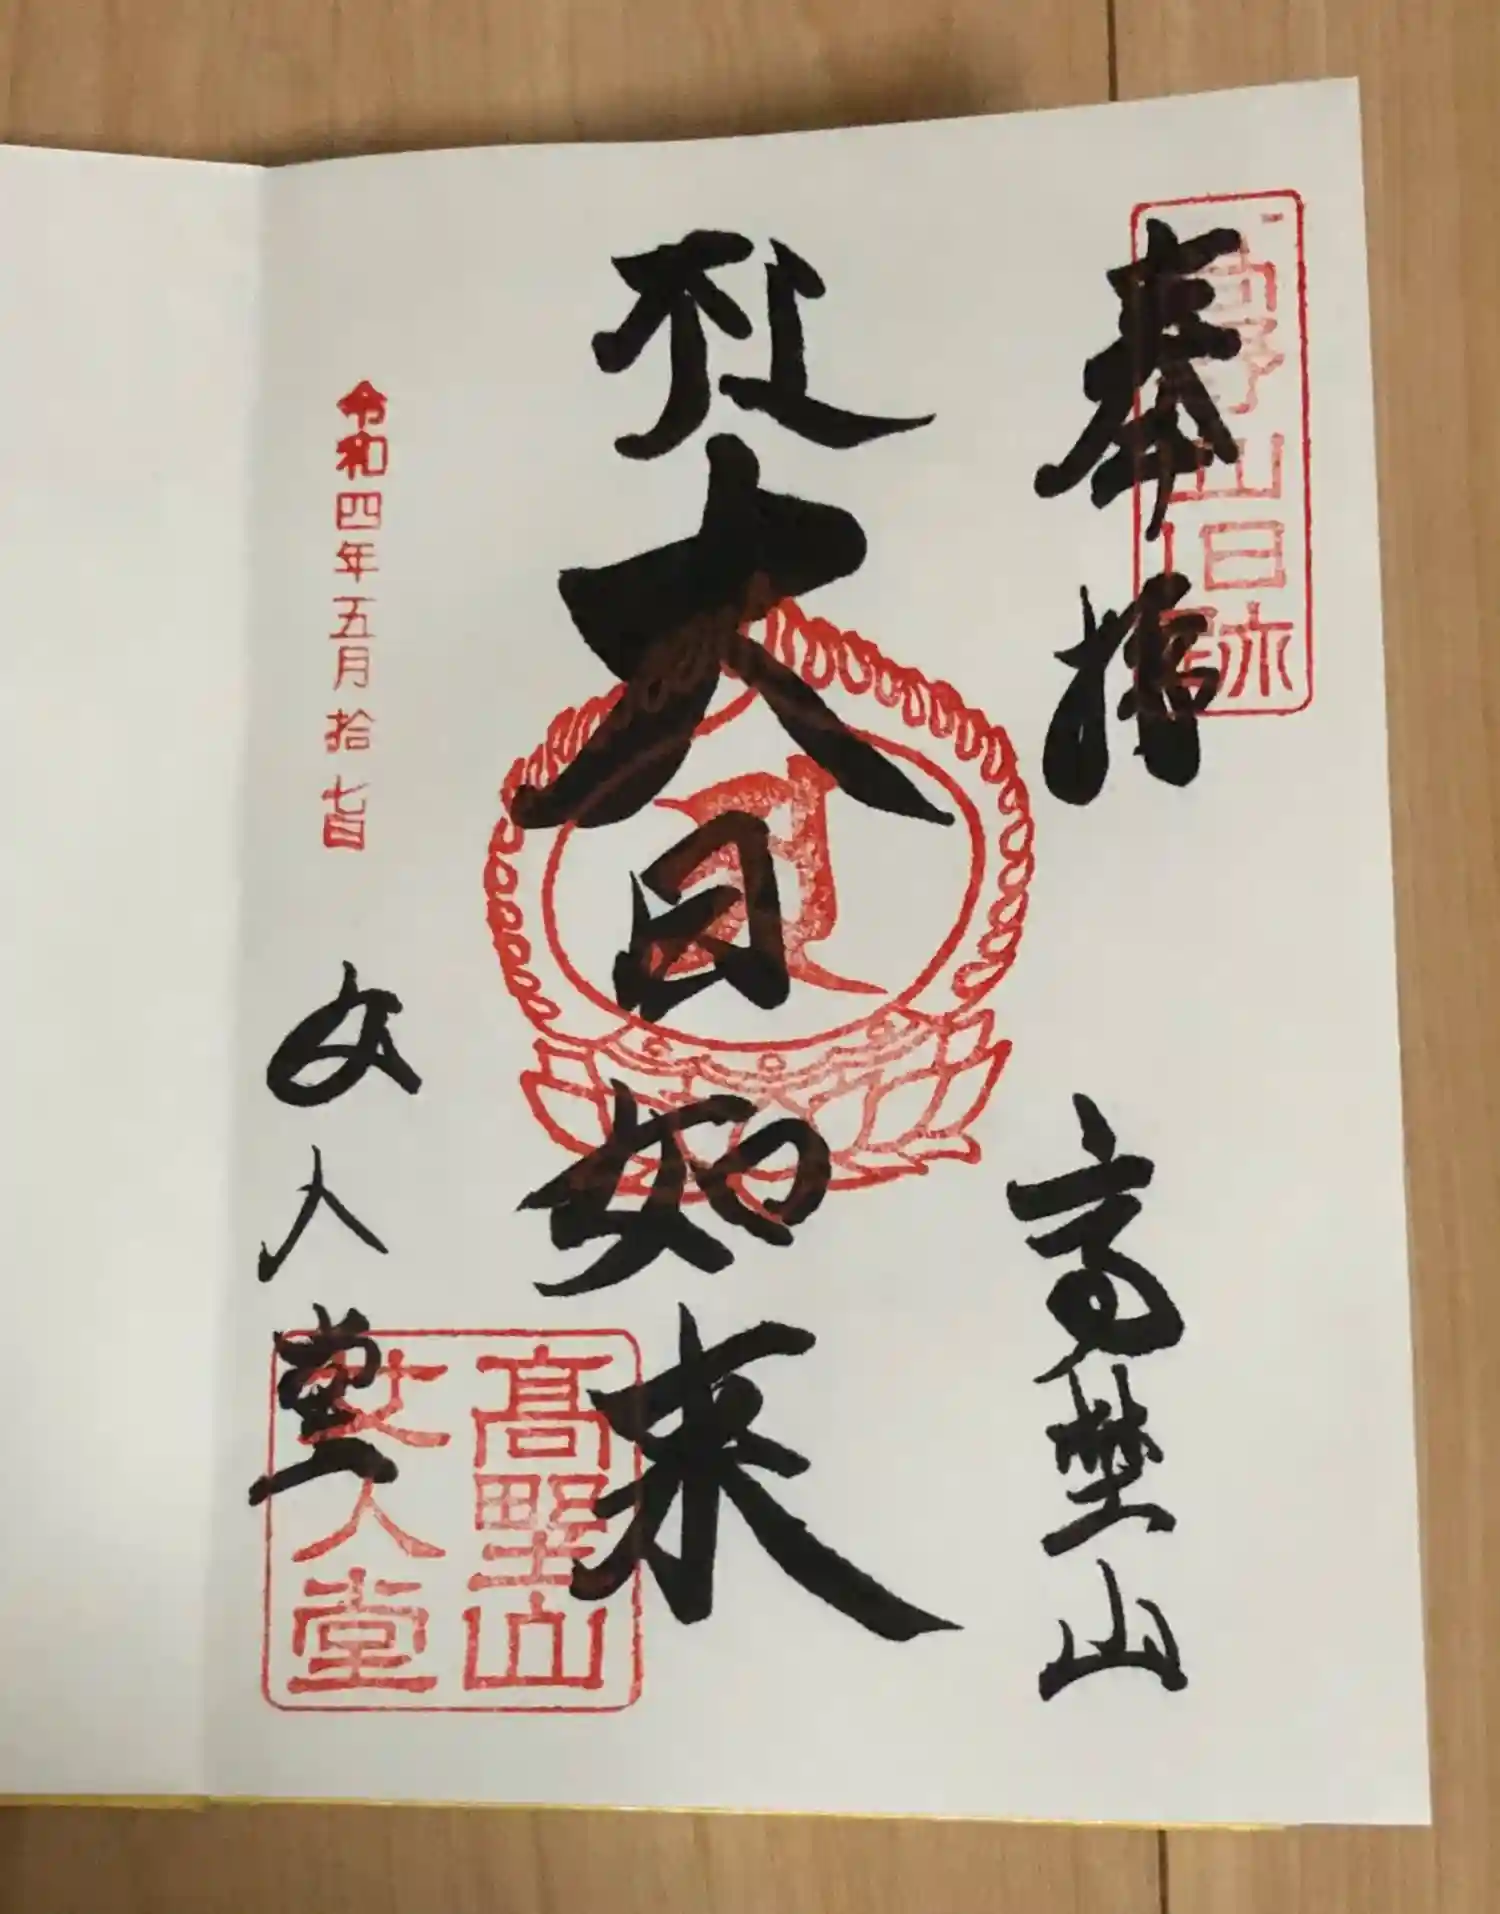 高野山旧跡
奉拝
高埜山
大日如来
令和四年五月拾七日
女人堂
髙野山
女人堂